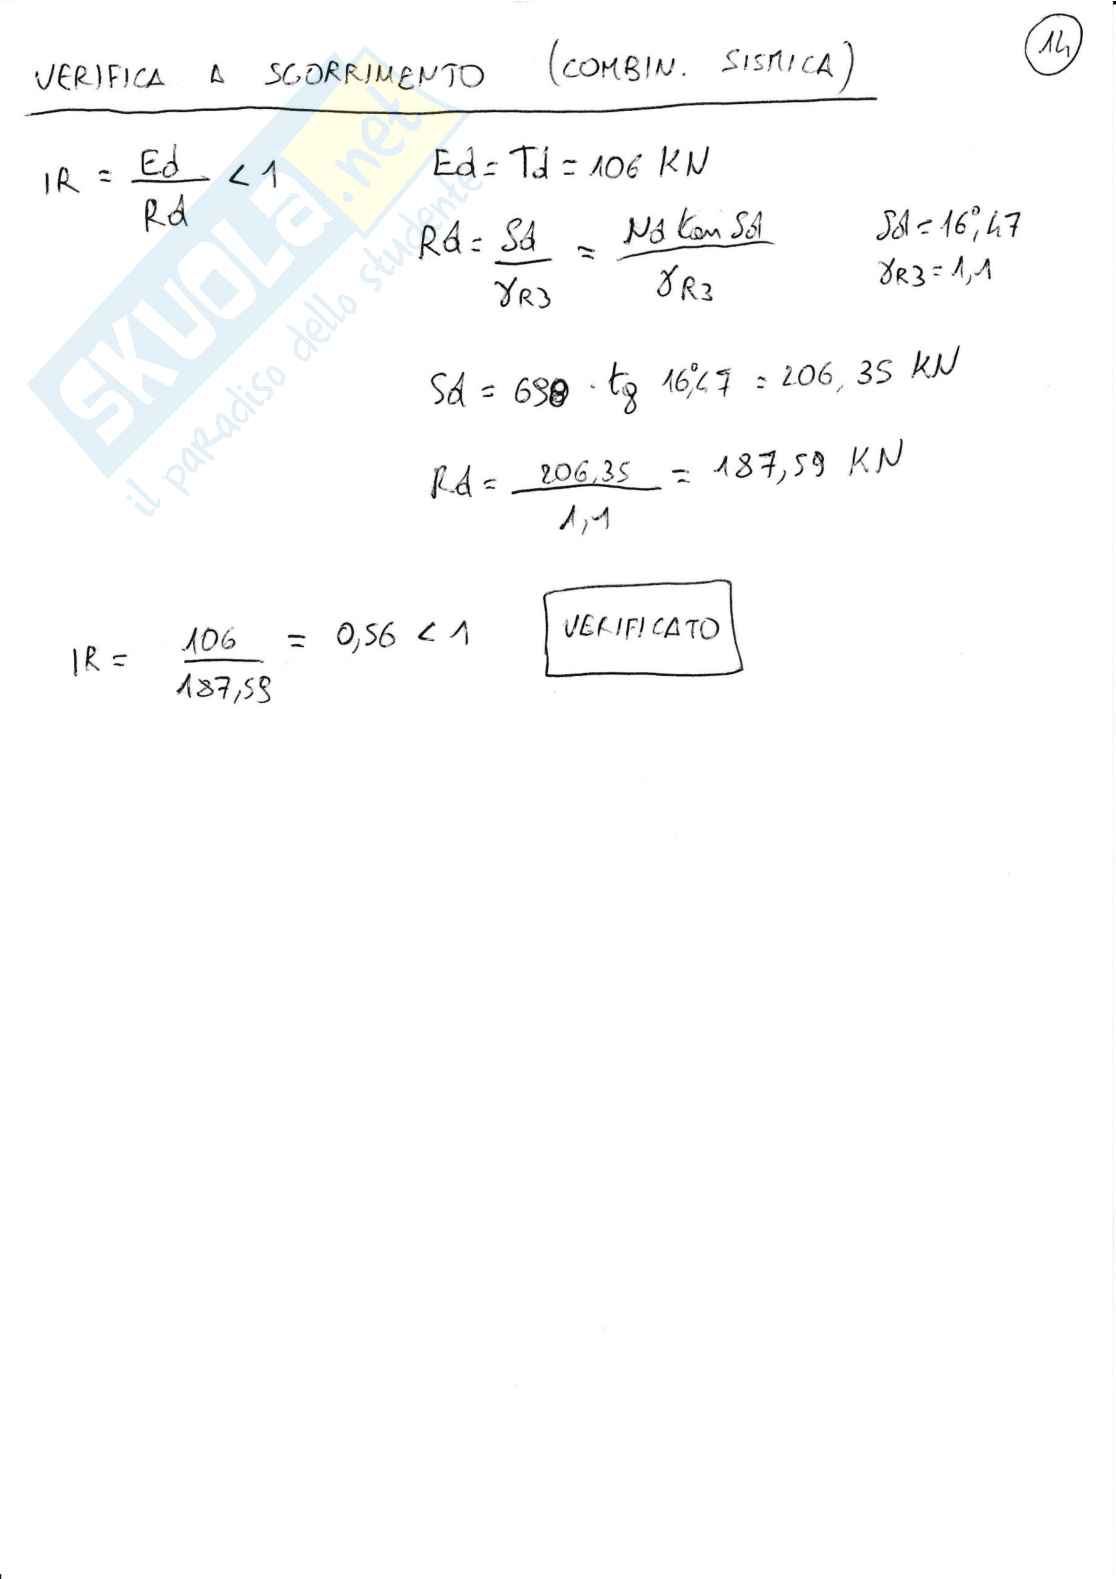 14
VERIFICA A SCORRIMENTO (COMBIN. SISMICA)
IR = Ed / Rd < 1
Ed = Td = 106 KN
Rd = Sd / γR3 = Nd tan δd / γR3
δd = 16°,47
γR3 = 1,1
Sd = 698 · tg 16°,47 = 206,35 KN
Rd = 206,35 / 1,1 = 187,59 KN
IR = 106 / 187,59 = 0,56 < 1
VERIFICATO
SKUOLA.net
il paradiso dello studente